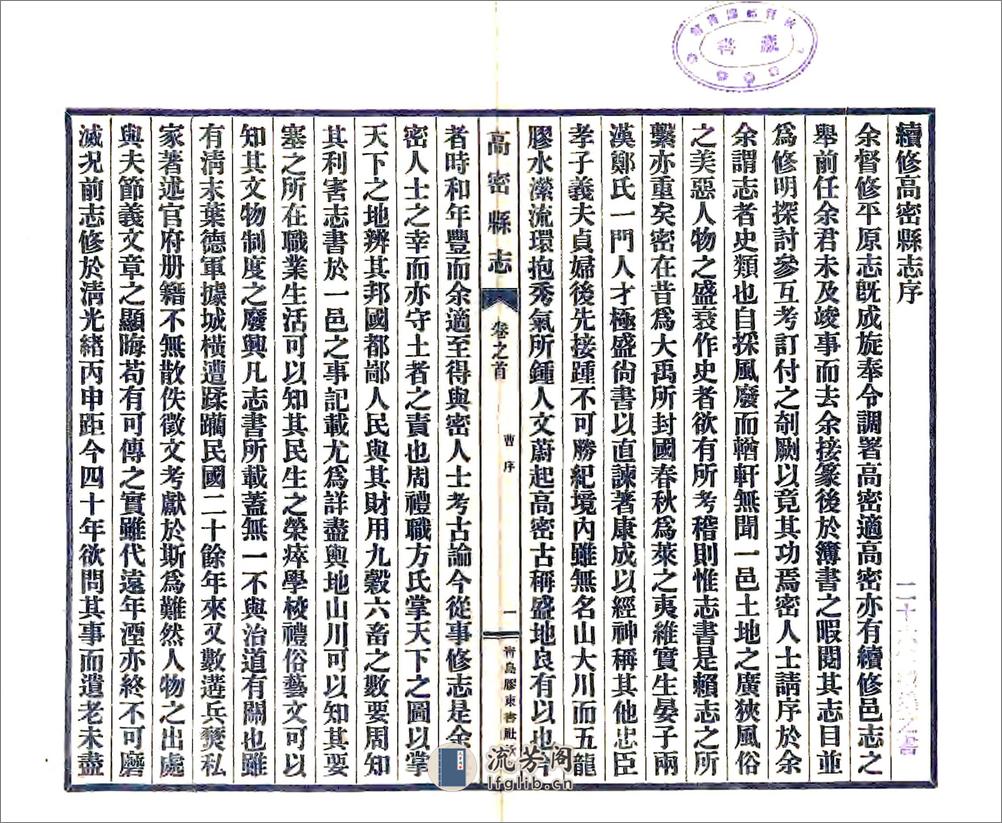 續修高密縣志序
余督修平原志既成旋奉令調署高密適高密亦有續修邑志之
舉前任余君未及竣事而去余接篆後於簿書之暇閱其志目並
爲修明探討參互考訂付之剞劂以竟其功焉密人士請序於余
余謂志者史類也自採風廢而輶軒無聞一邑土地之廣狹風俗
之美惡人物之盛衰作史者欲有所考稽則惟志書是賴志之所
繫亦重矣密在昔爲大禹所封國春秋爲萊之夷維實生晏子兩
漢鄭氏一門人才極盛尙書以直諫著康成以經神稱其他忠臣
孝子義夫貞婦後先接踵不可勝紀境內雖無名山大川而五龍
膠水瀠流環抱秀氣所鍾人文蔚起高密古稱盛地良有以也今
高密縣志
卷之首
曹序
一
青島膠東書社
者時和年豐而余適至得與密人士考古論今從事修志是余與
密人士之幸而亦守土者之責也周禮職方氏掌天下之圖以掌
天下之地辨其邦國都鄙人民與其財用九穀六畜之數要周知
其利害志書於一邑之事記載尤爲詳盡輿地山川可以知其要
塞之所在職業生活可以知其民生之榮瘁學校禮俗藝文可以
知其文物制度之廢興凡志書所載蓋無一不與治道有關也雖
有淸末葉德軍據城橫遭蹂躪民國二十餘年來又數遘兵燹私
家著述官府册籍不無散佚徵文考獻於斯爲難然人物之出處
與夫節義文章之顯晦苟有可傳之實雖代遠年湮亦終不可磨
滅况前志修於淸光緒丙申距今四十年欲問其事而遺老未盡
藏書
流芳阁
lfglib.cn